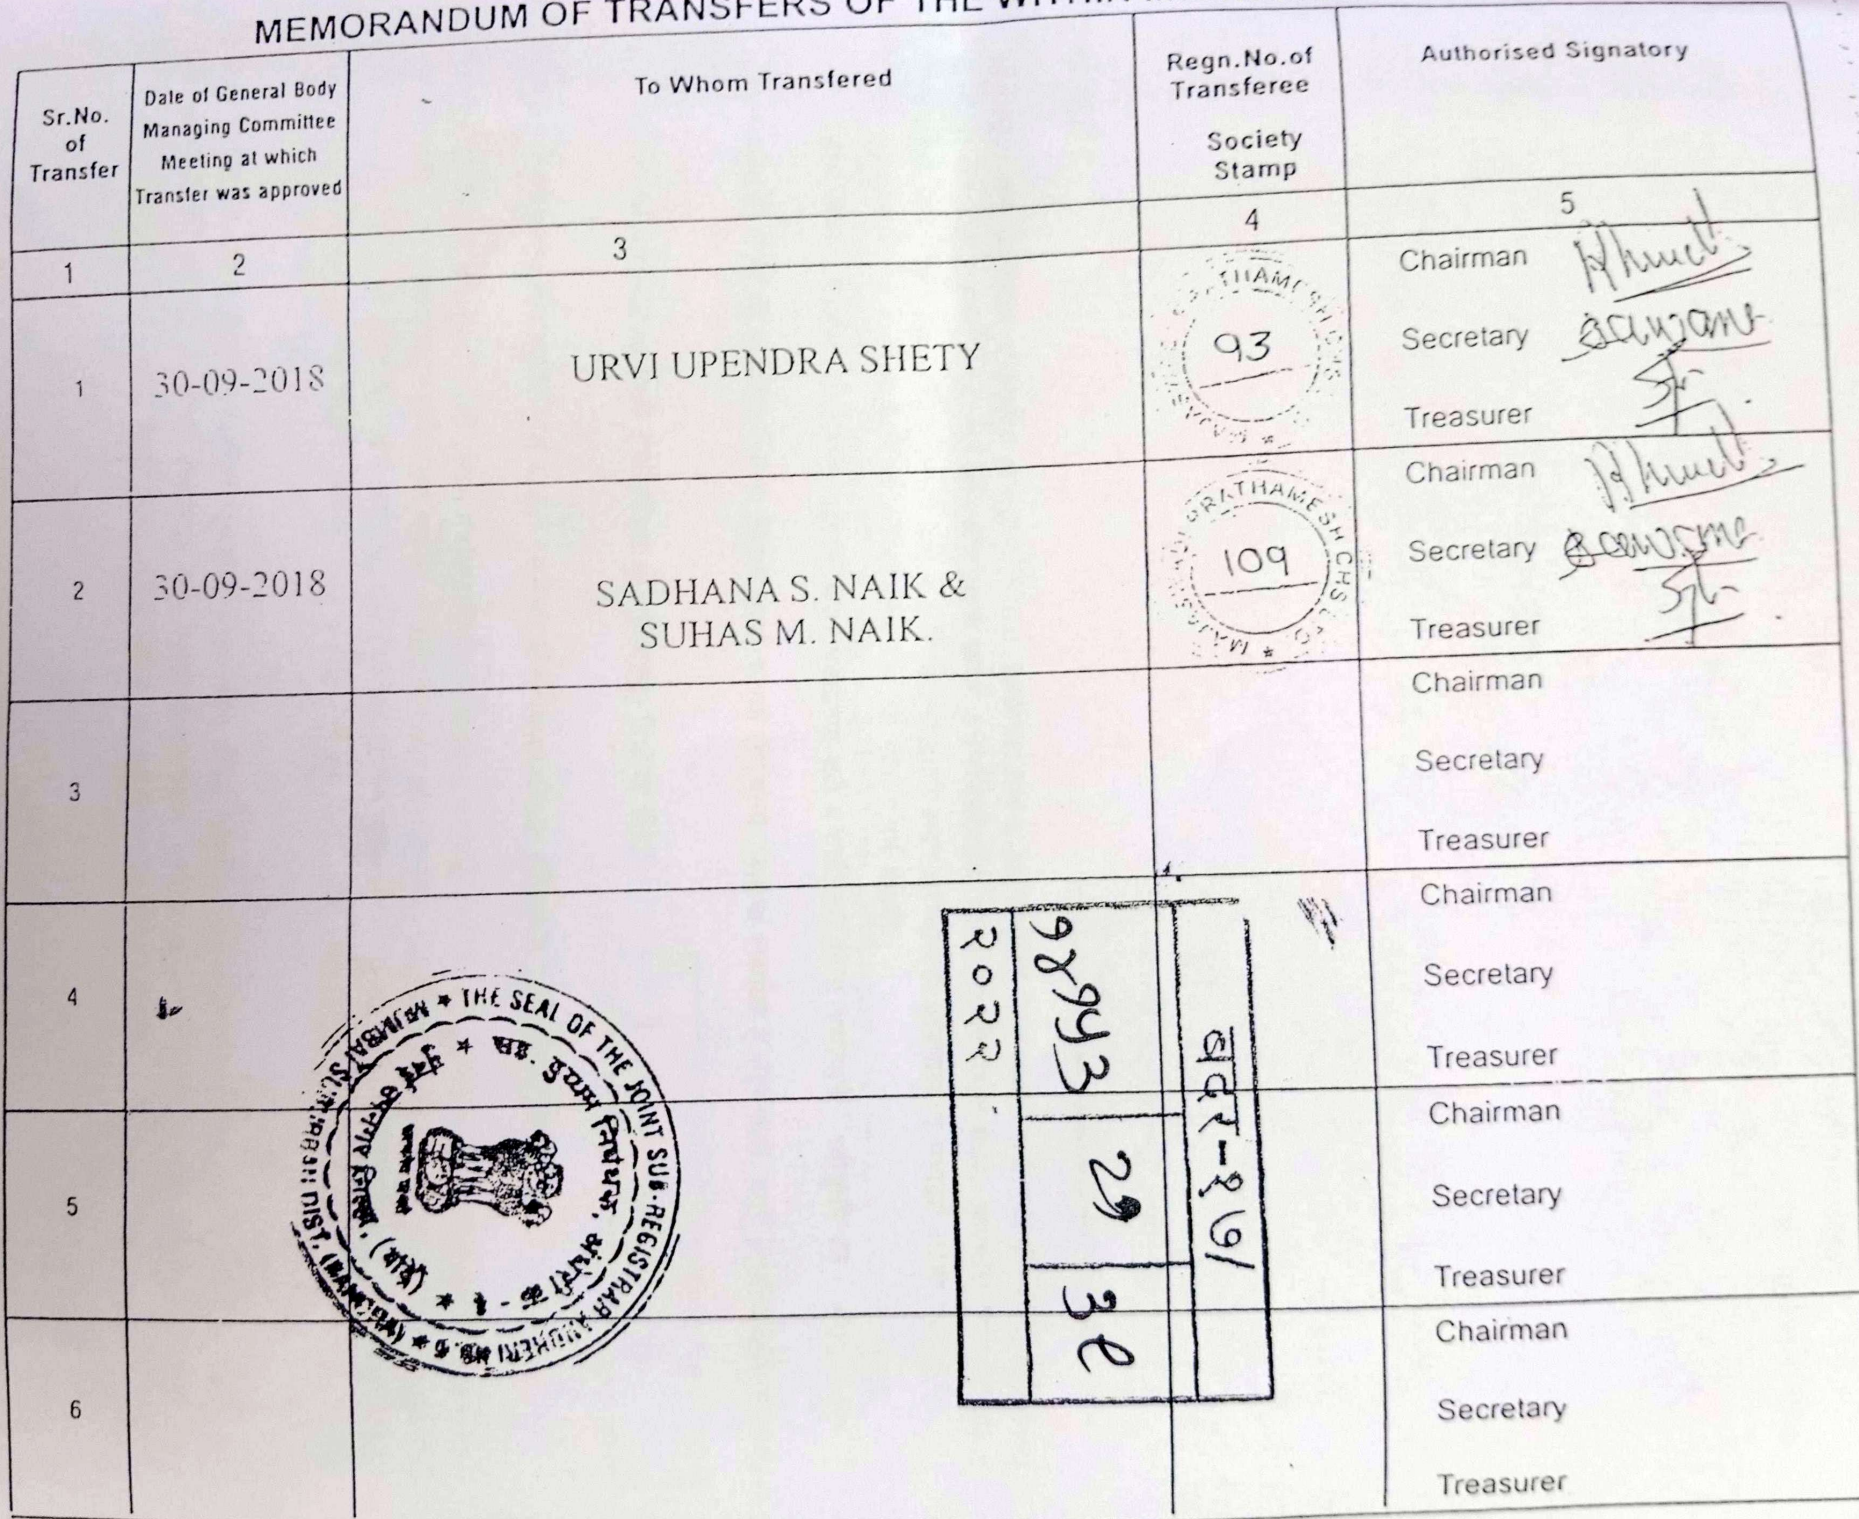 MEMORANDUM OF TRANSFERS OF THE WITHIN
Sr.No. of Transfer
Date of General Body Managing Committee Meeting at which Transfer was approved
To Whom Transfered
Regn.No.of Transferee Society Stamp
Authorised Signatory
1 2 3 4 5
1 30-09-2018 URVI UPENDRA SHETY 93
Chairman
Secretary
Treasurer
2 30-09-2018 SADHANA S. NAIK &
SUHAS M. NAIK.
PRATHAMESH CHS
109
Chairman
Secretary
Treasurer
3
Chairman
Secretary
Treasurer
4
Chairman
Secretary
Treasurer
5
Chairman
Secretary
Treasurer
6
Chairman
Secretary
Treasurer
THE SEAL OF THE JOINT SUB-REGISTRAR ANDHERI NO. 6
MUMBAI SUBURBAN DIST. (BANDRA)
सह. दुय्यम निबंधक, अंधेरी
वदर-१७/
१४१५३ २१ ३९
२०२२